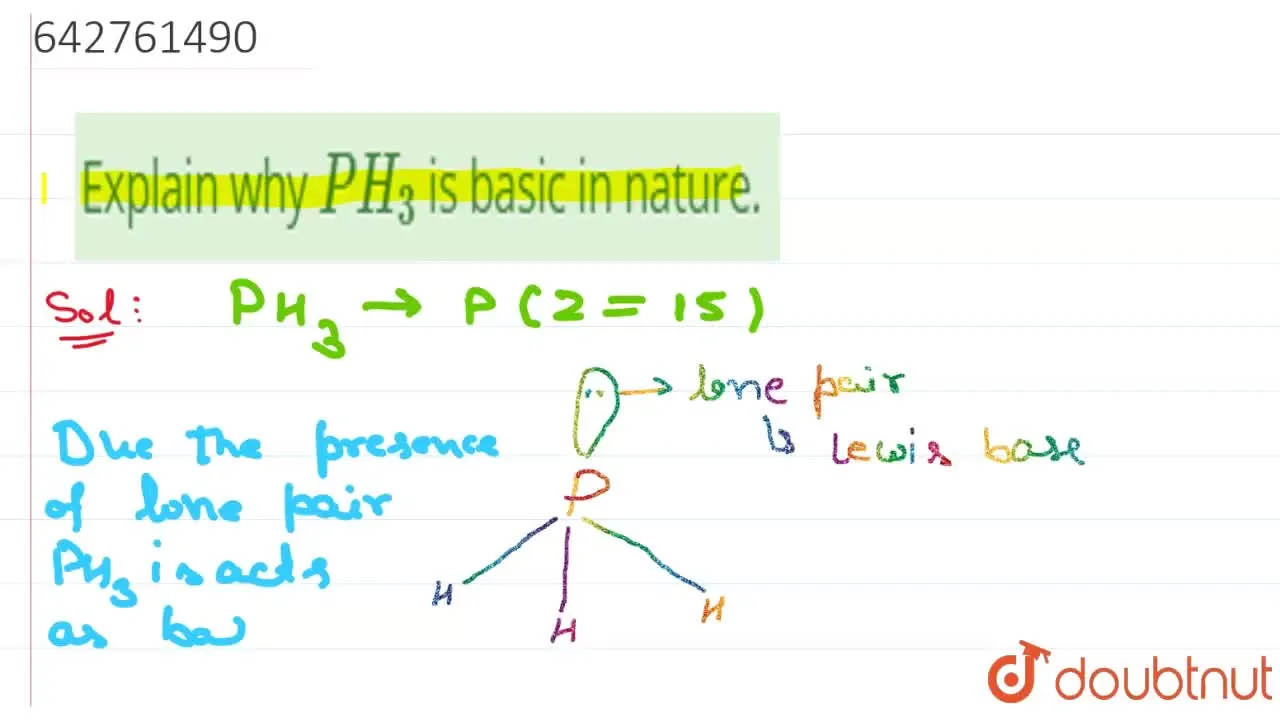 642761490
Explain why PH₃ is basic in nature.
Sol:
PH₃ → P (Z = 15)
lone pair
↳ Lewis base
Due the presence
of lone pair
PH₃ is acts
as ba
P
H
H
H
doubtnut